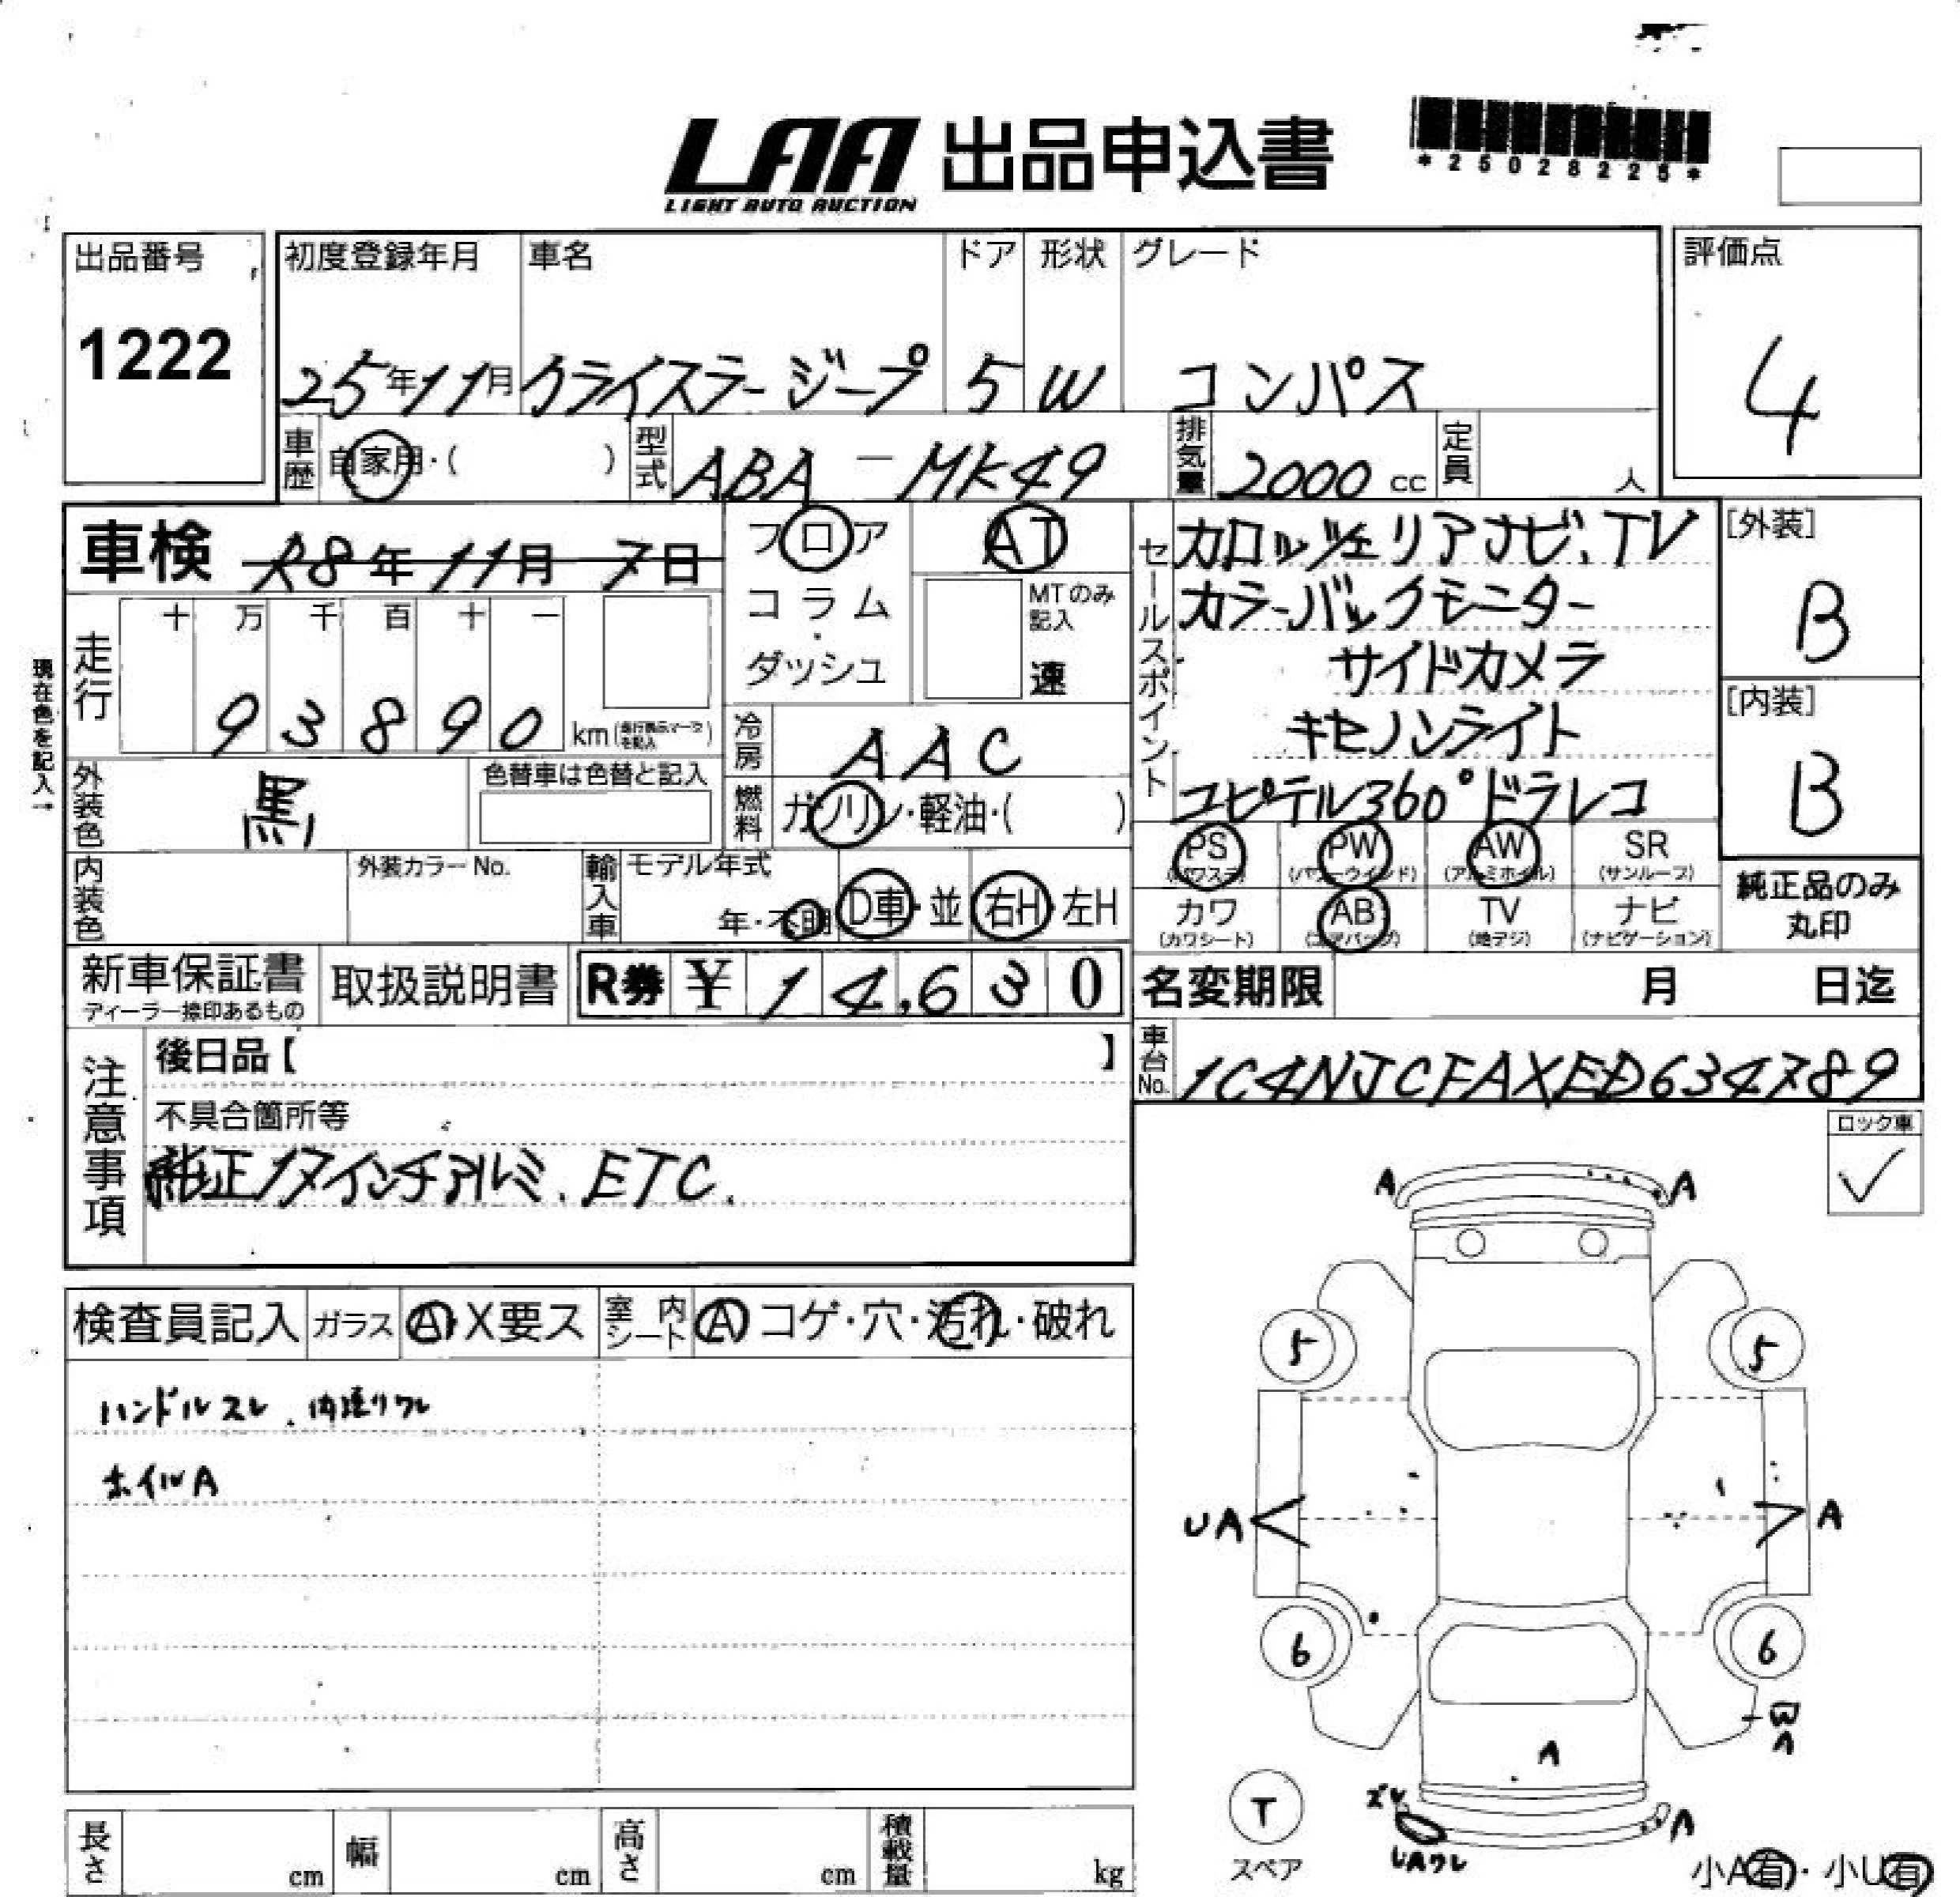 LAA 出品申込書
LIGHT AUTO AUCTION
*25028225*
出品番号
1222
初度登録年月 車名 ドア 形状 グレード
25年11月 クライスラージープ 5 W コンパス
評価点
4
車歴 自家用・( ) 型式 ABA-MK49 排気量 2000 cc 定員 人
車検 R8年11月7日
フロア
コラム
・
ダッシュ
AT
MTのみ
記入
速
セールスポイント
カロッツェリアナビ、TV
カラーバックモニター
サイドカメラ
キセノンライト
コピテル360°ドラレコ
[外装]
B
[内装]
B
現在色を記入→
走行 十 万 千 百 十 一
93890 km
冷房 AAC
外装色 黒 色替車は色替と記入
燃料 ガソリン・軽油・( )
内装色 外装カラーNo.
輸入車 モデル年式
年・不明 D車・並 右H・左H
PS (パワステ) PW (パワーウインド) AW (アルミホイル) SR (サンルーフ)
カワ (カワシート) AB (エアバッグ) TV (地デジ) ナビ (ナビゲーション)
純正品のみ
丸印
新車保証書
ディーラー捺印あるもの
取扱説明書
R券 ¥ 14,630
名変期限 月 日迄
車台No. 1C4NJCFAXED634789
注意事項
後日品【 】
不具合箇所等
純正17インチアルミ、ETC.
ロック車
✓
検査員記入 ガラス A・X要ス 室内シート A コゲ・穴・汚れ・破れ
ハンドルスレ、内張りワレ
ホイルA
A A
5 5
UA A
6 6
A
ズレ
UAワレ
A
T
スペア
小A有・小U有
長さ cm 幅 cm 高さ cm 積載量 kg